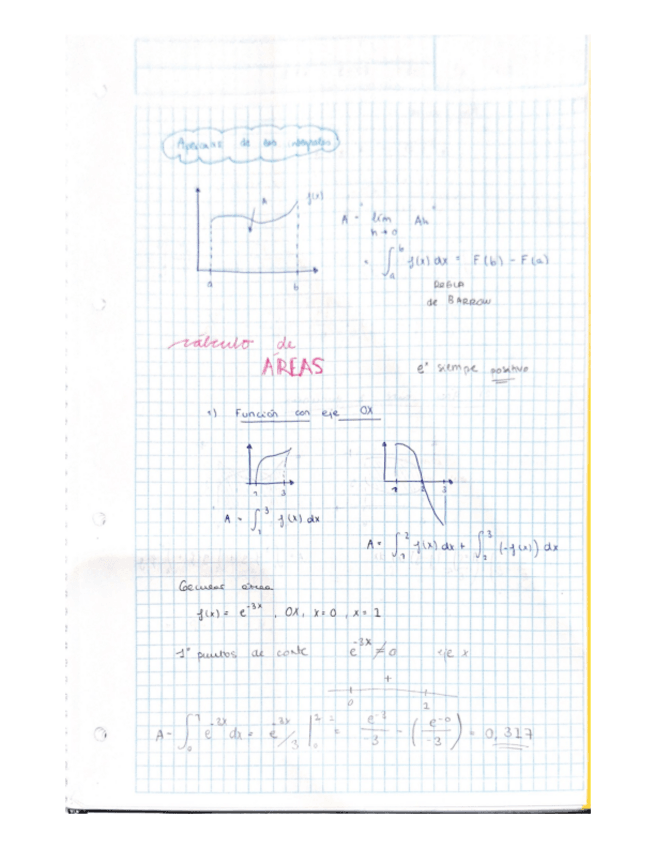 Aplicación de las integrales
A
f(x)
a b
A = lim Ah
h→0
= ∫ₐᵇ f(x) dx = F(b) - F(a)
REGLA
de BARROW
cálculo de
ÁREAS
eˣ siempre positiva
1) Función con eje OX
1 3
1 2 3
A = ∫₁³ f(x) dx
A = ∫₁² f(x) dx + ∫₂³ (-f(x)) dx
área
f(x) = e⁻³ˣ , OX, x=0 , x=1
1º puntos de corte e⁻³ˣ ≠ 0 eje x
+
0 1
A = ∫₀¹ e⁻³ˣ dx = e⁻³ˣ/3 |₀¹ = e⁻³/-3 - (e⁻⁰/-3) = 0,317